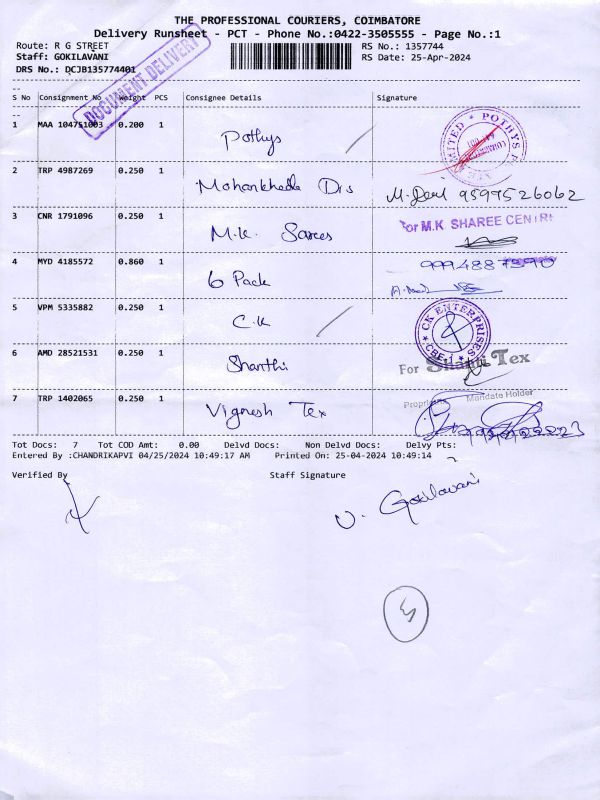 THE PROFESSIONAL COURIERS, COIMBATORE
Delivery Runsheet - PCT - Phone No.:0422-3505555 - Page No.:1
Route: R G STREET RS No.: 1357744
Staff: GOKILAVANI RS Date: 25-Apr-2024
DRS No.: DCJB135774401
DOCUMENT DELIVERY
S No Consignment No Weight PCS Consignee Details Signature
1 MAA 104751003 0.200 1 Pothys
POTHYS
2 TRP 4987269 0.250 1 Mohankheda Drs 9597526062
3 CNR 1791096 0.250 1 M.K. Sarees
For M.K SHAREE CENTRE
4 MYD 4185572 0.860 1 6 Pack
5 VPM 5335882 0.250 1 C.K
CK ENTERPRISES
6 AMD 28521531 0.250 1 Shanthi
For Shanti Tex
7 TRP 1402065 0.250 1 Vignesh Tex
Mandate Holder
Tot Docs: 7 Tot COD Amt: 0.00 Delvd Docs: Non Delvd Docs: Delvy Pts:
Entered By :CHANDRIKAPVI 04/25/2024 10:49:17 AM Printed On: 25-04-2024 10:49:14
Verified By Staff Signature
V. Gokilavani